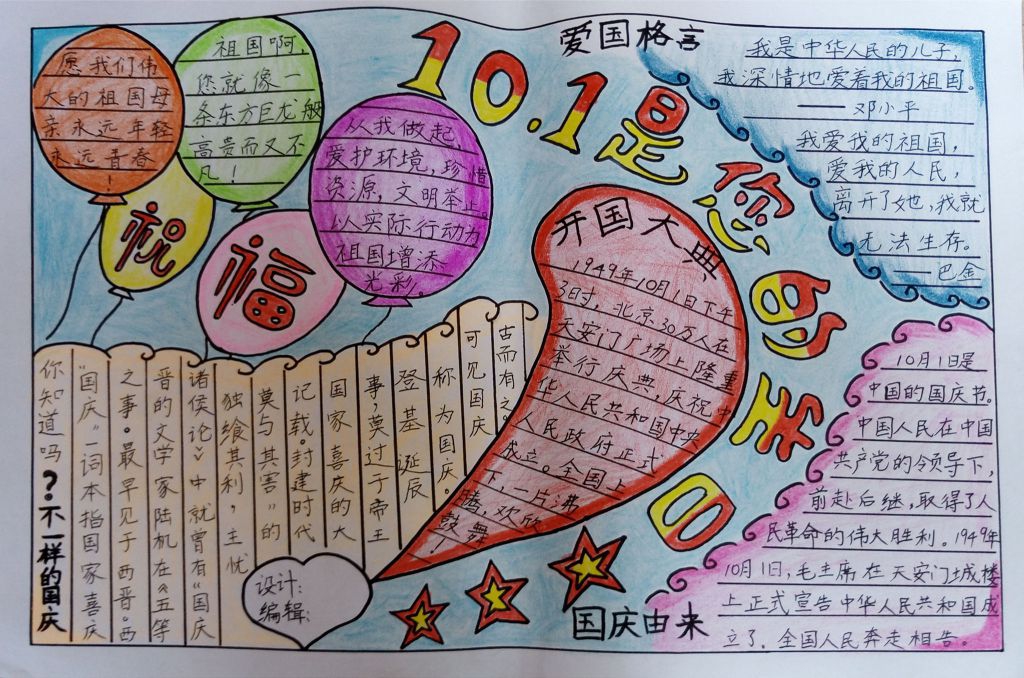 愿我们伟
大的祖国母
亲永远年轻
永远青春
！
祖国啊，
您就像一
条东方巨龙般
高贵而又不
凡！
从我做起，
爱护环境，珍惜
资源，文明举止。
以实际行动为
祖国增添
光彩。
祝
福
10.1是您的生日
爱国格言
我是中华人民的儿子，
我深情地爱着我的祖国。
——邓小平
我爱我的祖国，
爱我的人民，
离开了她，我就
无法生存。
——巴金
开国大典
1949年10月1日下午
3时，北京30万人在
天安门广场上隆重
举行庆典，庆祝中
华人民共和国中央
人民政府正式
成立。全国上
下一片沸
腾，欢欣
鼓舞！
你知道吗？不一样的国庆
"国庆"一词本指国家喜庆
之事。最早见于西晋。西
晋的文学家陆机在《五等
诸侯论》中就曾有"国庆
独飨其利，主忧
莫与其害"的
记载。封建时代
国家喜庆的大
事，莫过于帝王
登基诞辰
称为国庆。
可见国庆
古而有之。
设计：
编辑：
10月1日是
中国的国庆节。
中国人民在中国
共产党的领导下，
前赴后继，取得了人
民革命的伟大胜利。1949年
10月1日，毛主席在天安门城楼
上正式宣告中华人民共和国成
立了，全国人民奔走相告。
国庆由来